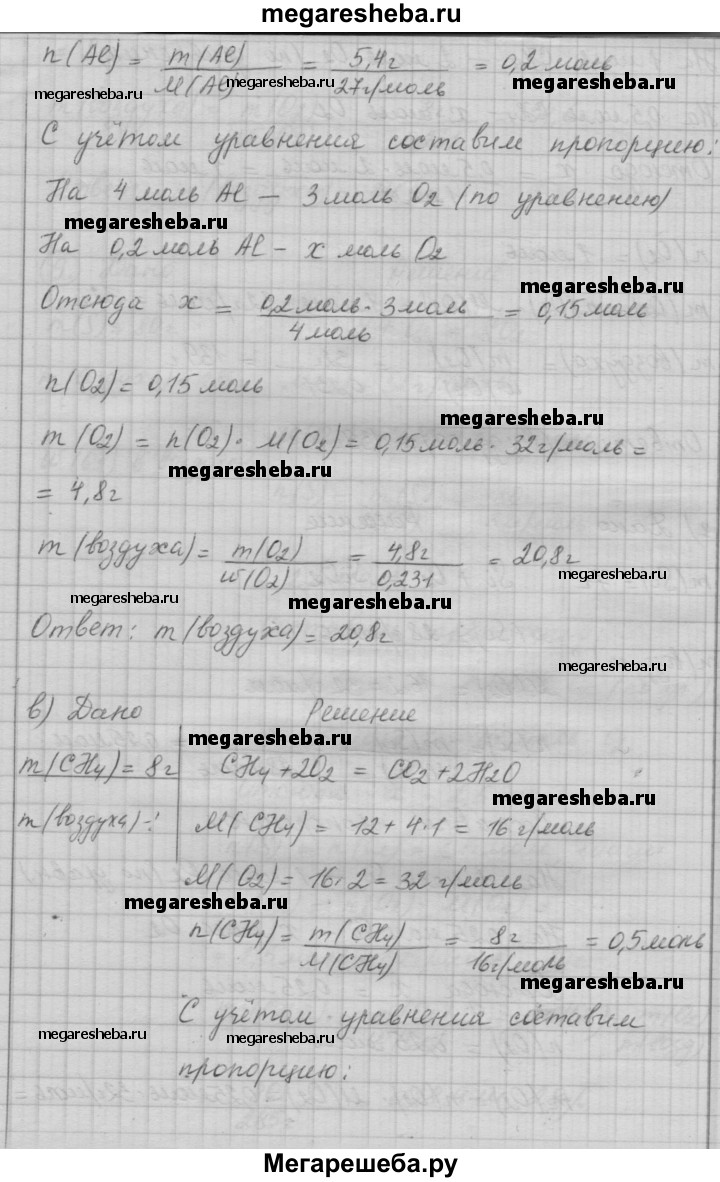 megaresheba.ru
n(Al) = m(Al) / M(Al) = 5,4г / 27г/моль = 0,2 моль
megaresheba.ru megaresheba.ru megaresheba.ru
С учётом уравнения составим пропорцию:
На 4 моль Al – 3 моль O2 (по уравнению)
megaresheba.ru
На 0,2 моль Al – x моль O2
megaresheba.ru
Отсюда x = 0,2 моль · 3 моль / 4 моль = 0,15 моль
n(O2) = 0,15 моль
megaresheba.ru
m(O2) = n(O2) · M(O2) = 0,15 моль · 32 г/моль =
megaresheba.ru
= 4,8г
m(воздуха) = m(O2) / w(O2) = 4,8г / 0,231 = 20,8г
megaresheba.ru
megaresheba.ru megaresheba.ru
Ответ: m(воздуха) = 20,8г
megaresheba.ru
в) Дано Решение
megaresheba.ru
m(CH4) = 8г CH4 + 2O2 = CO2 + 2H2O
megaresheba.ru
m(воздуха) -? M(CH4) = 12 + 4·1 = 16 г/моль
M(O2) = 16·2 = 32 г/моль
megaresheba.ru
n(CH4) = m(CH4) / M(CH4) = 8г / 16г/моль = 0,5 моль
megaresheba.ru
С учётом уравнения составим
megaresheba.ru megaresheba.ru
пропорцию:
Мегарешеба.ру